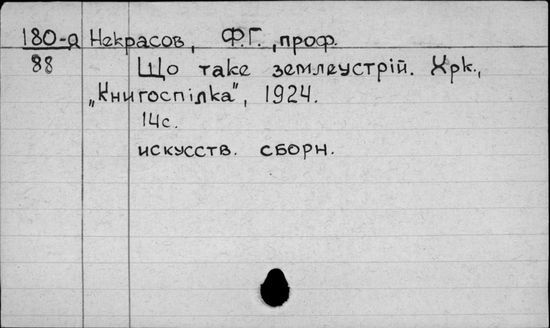 180-а Некрасов, Ф.Г., проф.
88 Що таке землеустрій. Хрк.,
„Книгоспілка", 1924.
14с.
искусств. сборн.